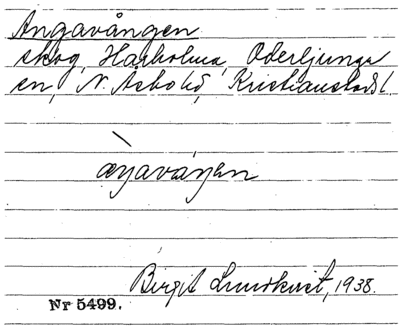 Angavången
skog, Hårholma, Oderljunga
sn, N. Åsbo hd, Kristianstads l.
Birgit Lundkvist, 1938.
Nr 5499.